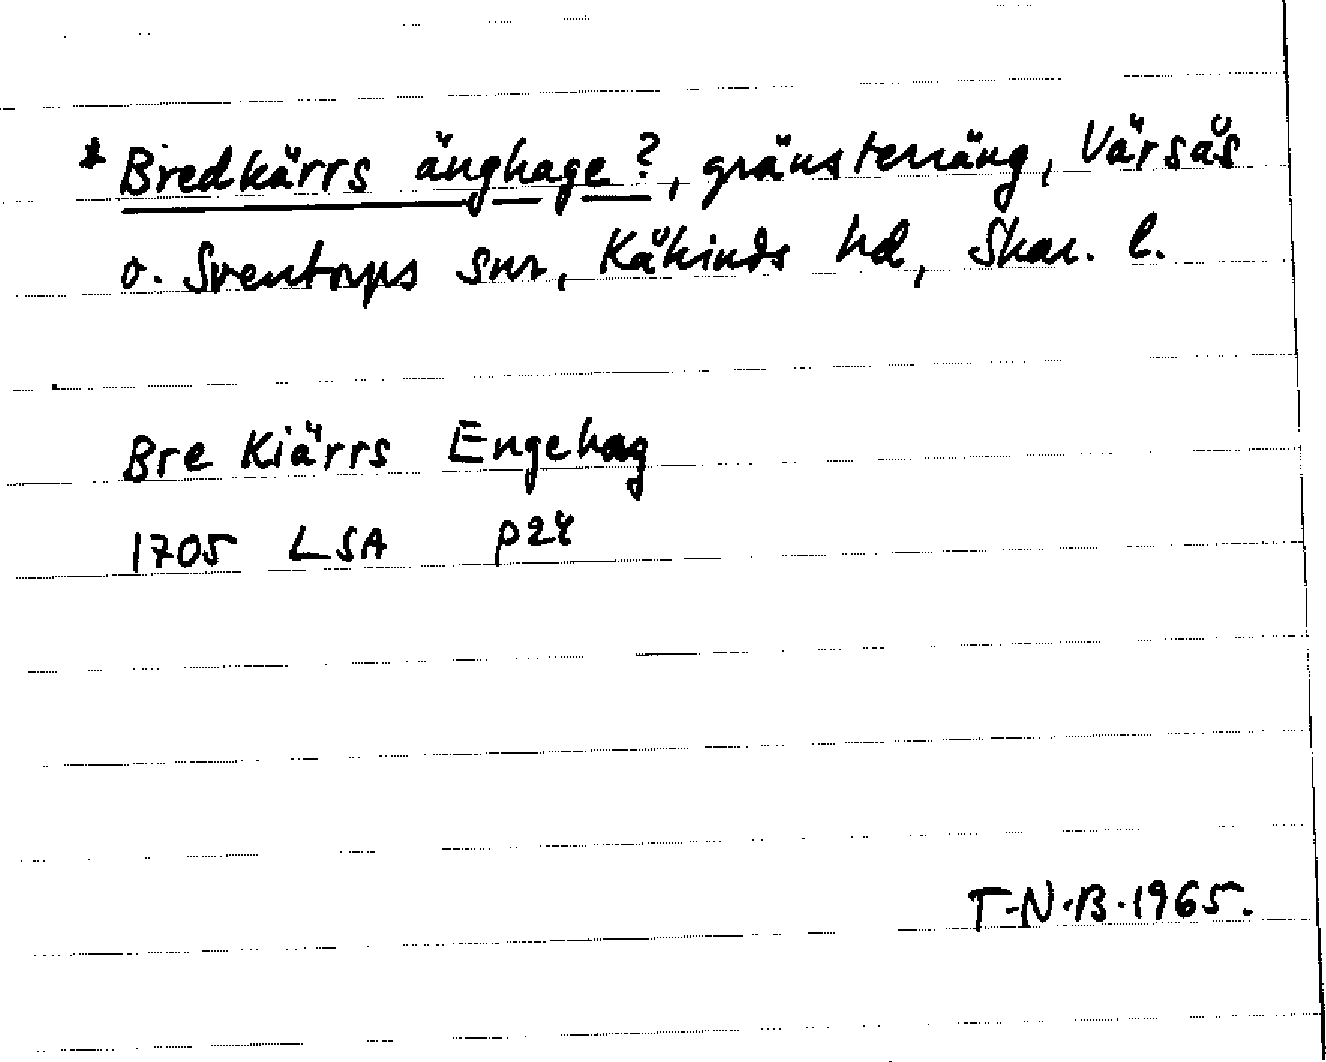 * Bredkärrs änghage?, gränsterräng, Värsås
o. Sventorps snr, Kåkinds hd, Skar. l.
Bre Kiärrs Engehag
1705 LSA P24
T-N.B.1965.